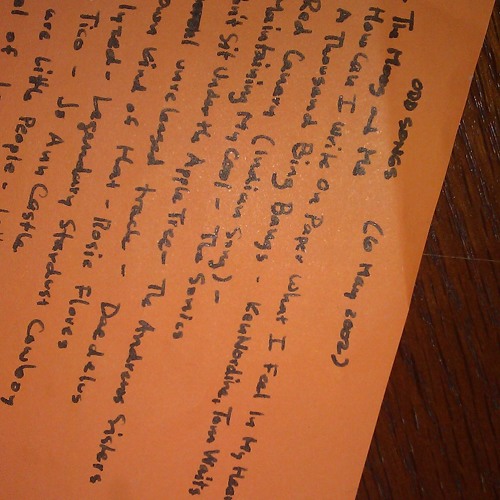 ODD SONGS (6 May 2002)
The Moon and Me
How Can I Write On Paper What I Feel In My Hea
A Thousand Bing Bangs - Ken Nordine, Tom Waits
Red Canary (Indian Song) -
Maintaining My Cool - The Sonics
n't Sit Under the Apple Tree - The Andrews Sisters
unreleased track - Daedelus
own Kind of Hat - Rosie Flores
lyzed - Legendary Stardust Cowboy
Tico - Jo Ann Castle
Little People -
of